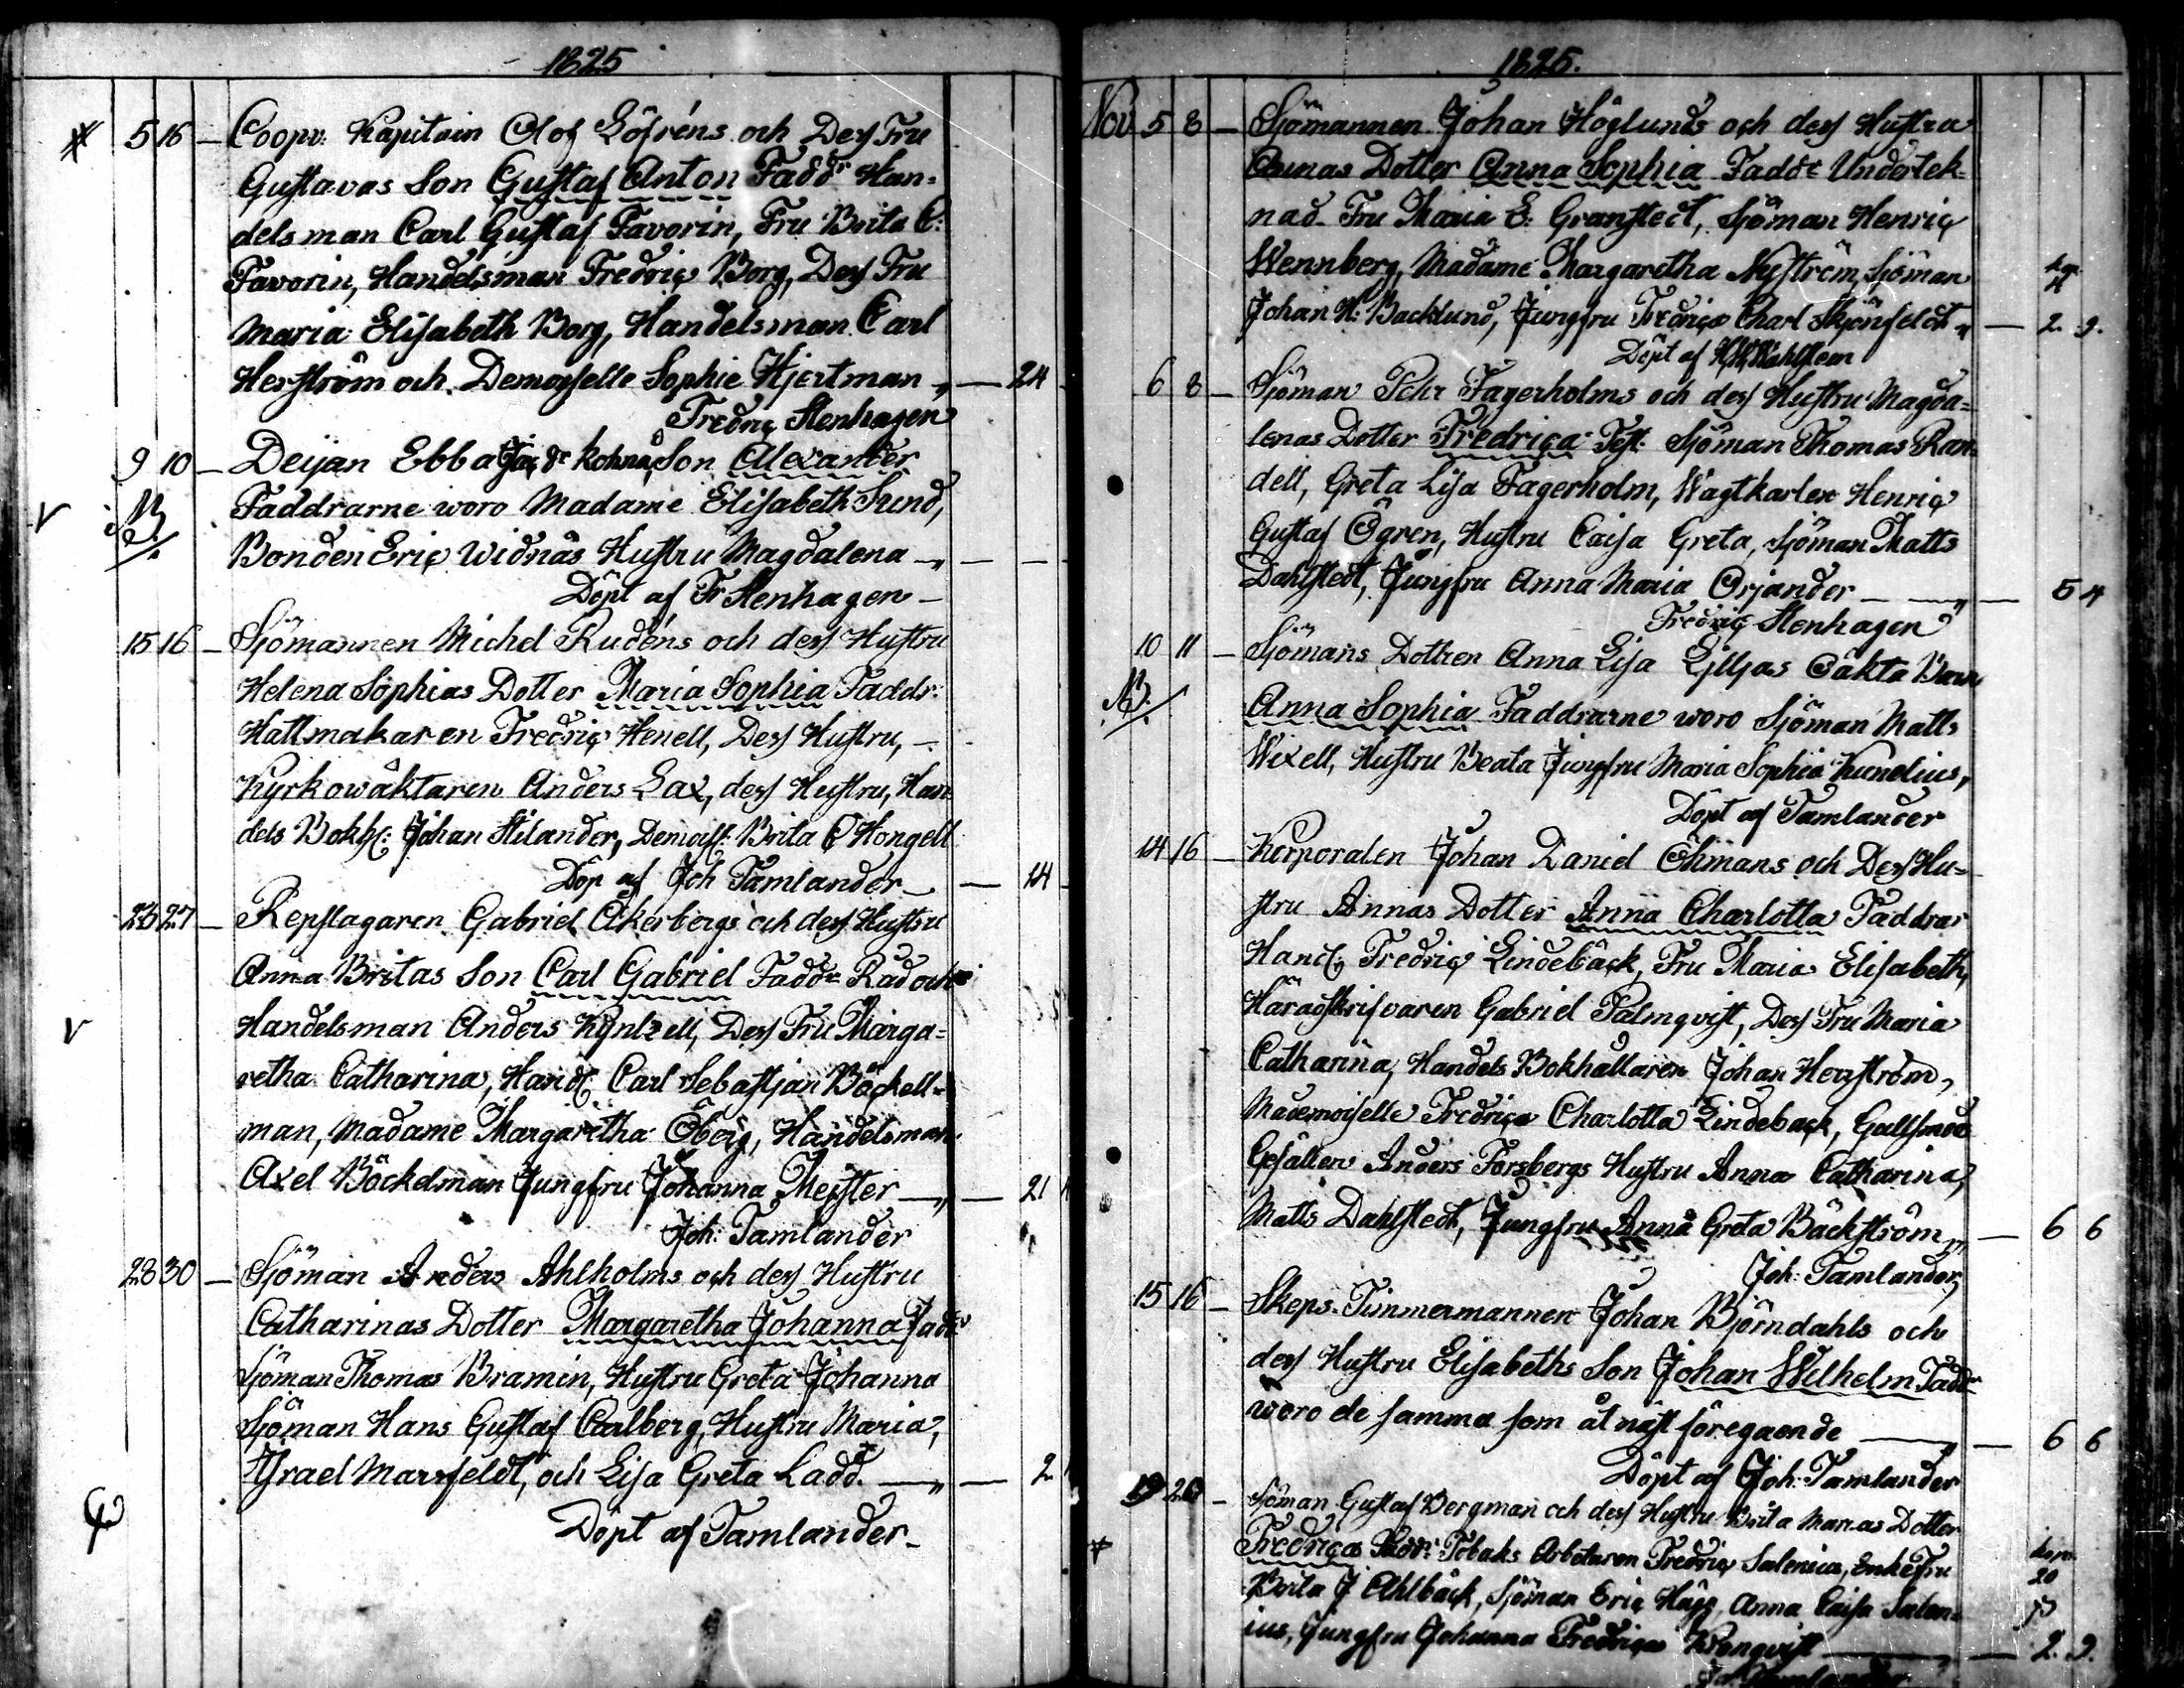 1825
5 16 — Coopv: Kapitain Olof Löfréns och Dess Fru
Gustavas Son Gustaf Anton Faddr Han-
delsman Carl Gustaf Favorin, Fru Brita C:
Favorin, Handelsman Fredric Borg, Dess Fru
Maria Elisabeth Borg, Handelsman Carl
Herström och Demoiselle Sophie Hjertman „ — 24
Fredric Stenhagen
9 10 — Deijan Ebba Son Alexander
Faddrarne woro Madame Elisabeth Sund,
Bonden Eric Widnäs Hustru Magdalena „ — —
Döpt af Fr Stenhagen —
15 16 — Sjömannen Michel Rudéns och dess Hustru
Helena Sophias Dotter Maria Sophia Faddr:
Hattmakaren Fredric Henell, Dess Hustru, —
Kyrkowäktaren Anders Lax, dess Hustru, Han-
dels Bokh: Johan Stilander, Demois: Brita C Hongell
Döp af Joh Tamlander — — 14
23 27 — Repslagaren Gabriel Åkerbergs och dess Hustru
Anna Britas Son Carl Gabriel Faddr Råd och
Handelsman Anders Kyntzell, Dess Fru Marga-
retha Catharina, Handl Carl Sebastjan Böckell-
man, Madame Margaretha Öberg, Handelsman
Axel Böckelman Jungfru Johanna Meister „ — 21
Joh: Tamlander
28 30 — Sjöman Anders Ahlholms och dess Hustru
Catharinas Dotter Margaretha Johanna Fadr
Sjöman Thomas Bramin, Hustru Greta Johanna
Sjöman Hans Gustaf Carlberg, Hustru Maria,
Israel Marsfeldt, och Lisa Greta Ladd. — „ — 2
Döpt af Tamlander —
1825.
Nov 5 8 — Sjömannen Johan Höglunds och dess Hustru
Annas Dotter Anna Sophia Faddr Undertek-
nad Fru Maria E: Granstedt, Sjöman Henric
Wennberg, Madame Margaretha Nyström, Sjöman
Johan H: Backlund, Jungfru Fredrica Charl Skjönfeldt „ — 2. 9.
Döpt af H Wahlsten
6 8 — Sjöman Pehr Fagerholms och dess Hustru Magda-
lenas Dotter Fredrica Test: Sjöman Thomas Ran-
dell, Greta Lisa Fagerholm, Wagtkarlen Henric
Gustaf Ögren, Hustru Caisa Greta, Sjöman Matts
Dahlstedt, Jungfru Anna Maria Orjander — „ — 5 4
Fredric Stenhagen
10 11 — Sjömans Dottren Anna Lisa Liljas Oäkta Barn
NB. Anna Sophia Faddrarne woro Sjöman Matts
Wixell, Hustru Beata Jungfru Maria Sophia Kunelius,
Döpt af Tamlander
14 16 — Korporalen Johan Daniel Öhmans och Dess Hu-
stru Annas Dotter Anna Charlotta Faddrar
Handl: Fredric Lindebäck, Fru Maria Elisabeth,
Häradskrifvaren Gabriel Palmqvist, Dess Fru Maria
Catharina, Handels Bokhållaren Johan Herrström,
Mademoiselle Fredrica Charlotta Lindeback, Gullsmeds
Gesällen Anders Forsbergs Hustru Anna Catharina,
Matts Dahlstedt, Jungfru Anna Greta Bäckström „ — 6 6
Joh: Tamlander,
15 16 — Skeps-Timmermannen Johan Björndahls och
dess Hustru Elisabeths Son Johan Wilhelm Faddr
woro de samma som åt näst föregående — „ — 6 6
Döpt af Joh: Tamlander
19 20 — Sjöman Gustaf Bergman och dess Hustru Brita Marias Dotter
Fredrica Faddr: Tobaks Arbetaren Fredric Salenius, Enke Fru
Brita J Ahlbäck, Sjöman Eric Hägg, Anna Caisa Salen-
ius, Jungfru Johanna Fredrica Wenqvist — „ — 2. 9.